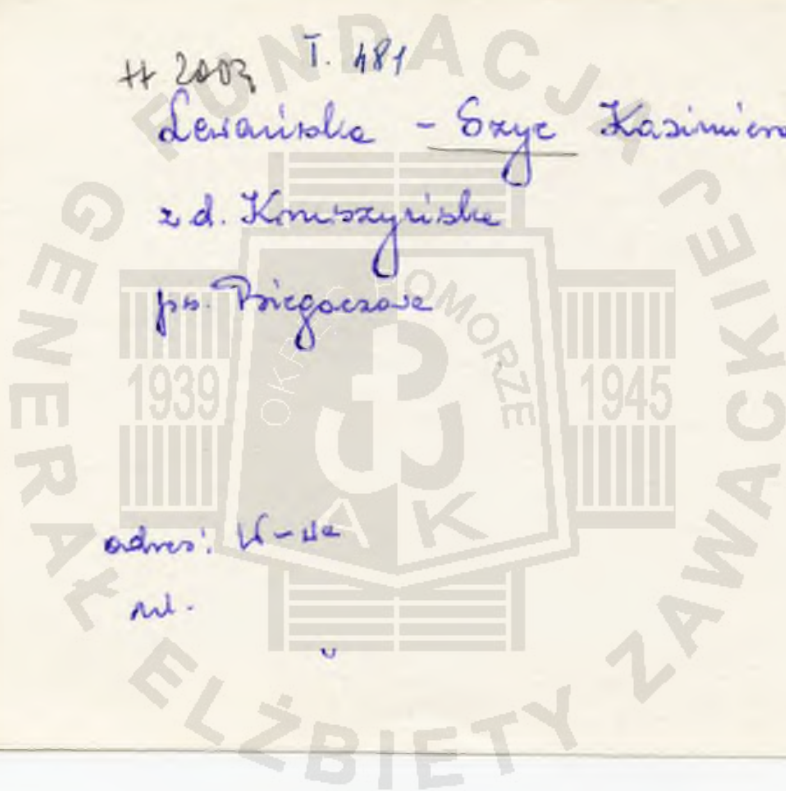 ++ 2003 T. 481
Lewańska - Szyc Kasimiera
z d. Kruszyńska
ps. Biegaczowa
adres: W-wa
ul.
FUNDACJA JEN
GENERAŁ ELŻBIETY ZAWACKIEJ
OKRĘG POMORZE
1939 1945
AK